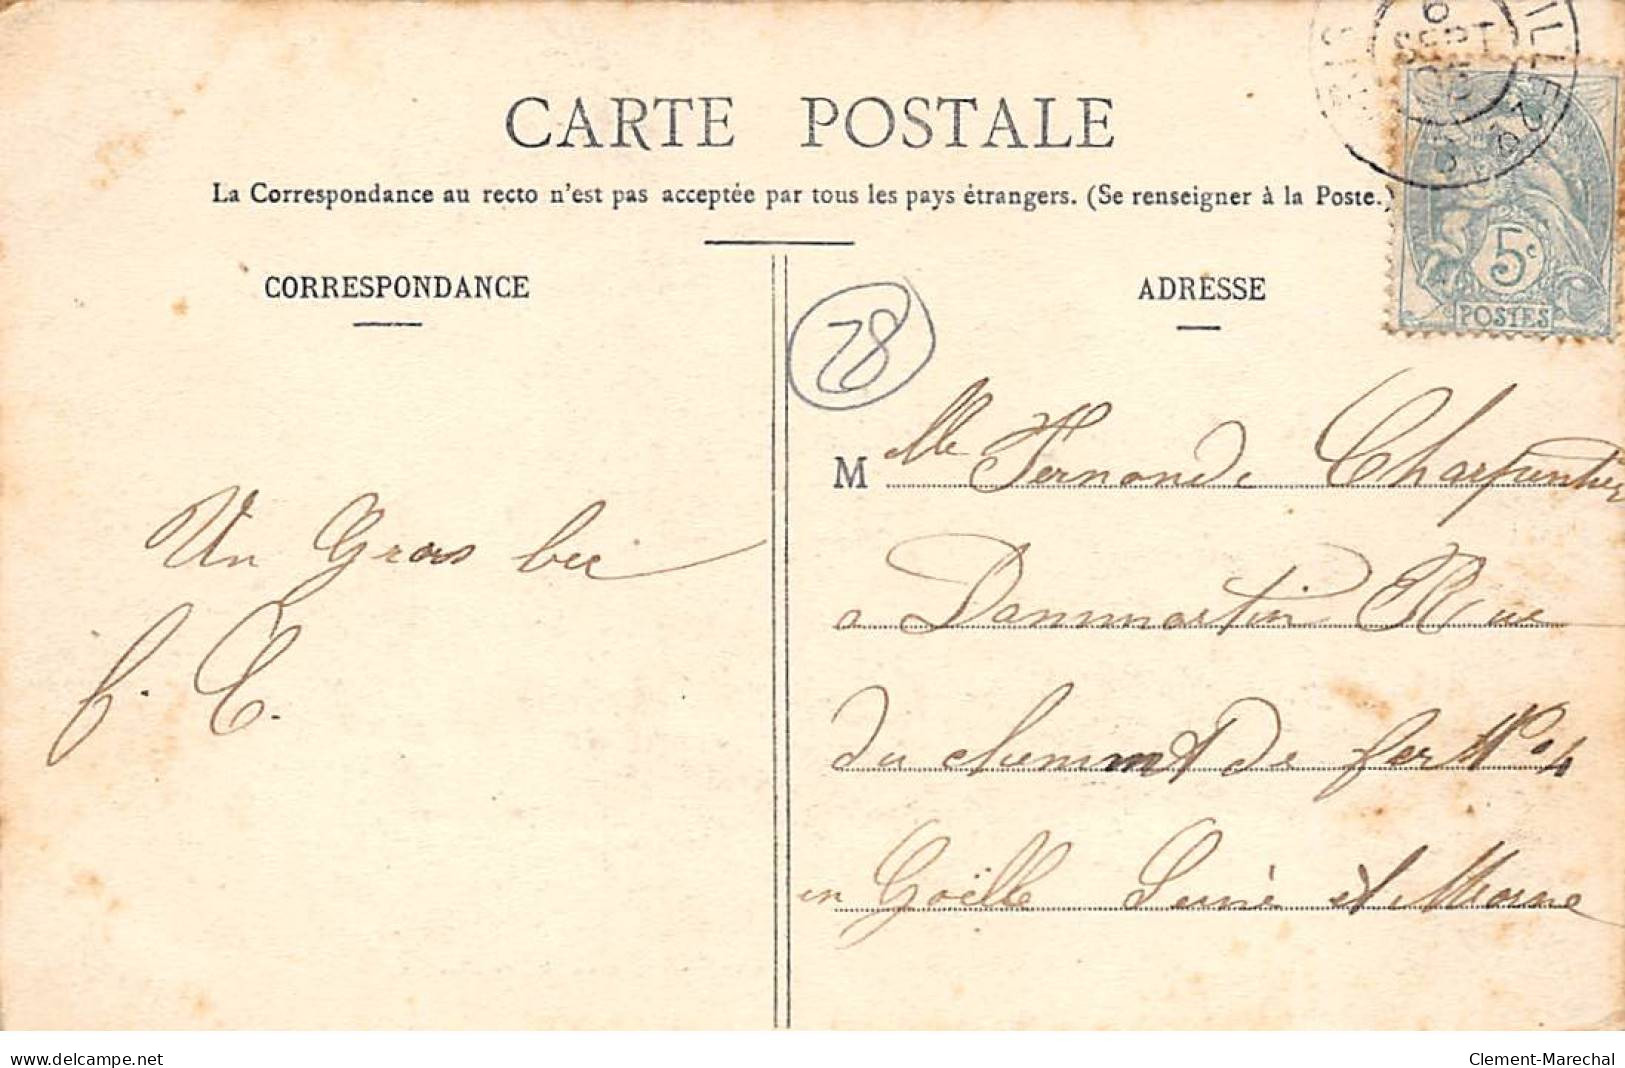 CARTE POSTALE
La Correspondance au recto n'est pas acceptée par tous les pays étrangers. (Se renseigner à la Poste.)
CORRESPONDANCE
ADRESSE
5c
POSTES
6
SEPT
05
28
Un Gros bec
f. C.
M elle Fernande Charpentier
a Dammartin Rue
du chemint de fer No 4
en Goëlle Seine et Marne
www.delcampe.net
Clement-Marechal